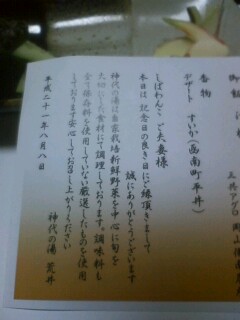 香物
デザート すいか（函南町平井）
しばわんこ ご夫妻様
本日は 記念日の良き日にご縁頂きまして
誠にありがとうございます
神代の湯は自家栽培新鮮野菜を中心に旬を
大切にした食材にて調理しております。調味料も
合成保存料を使用していない厳選したものを使用
しております安心してお召し上がりください
平成二十一年八月八日
神代の湯 荒井